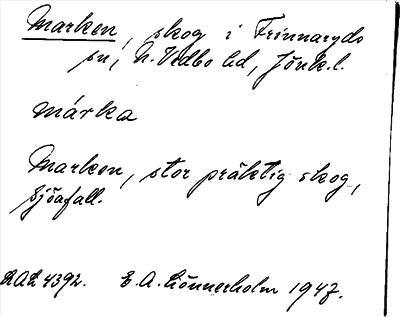 Marken, skog i Frinnaryds
sn, N. Vedbo hd, Jönk. l.
márka
Marken, stor präktig skog,
Sjöafall.
E. A. Lönnerholm 1947.
4392.